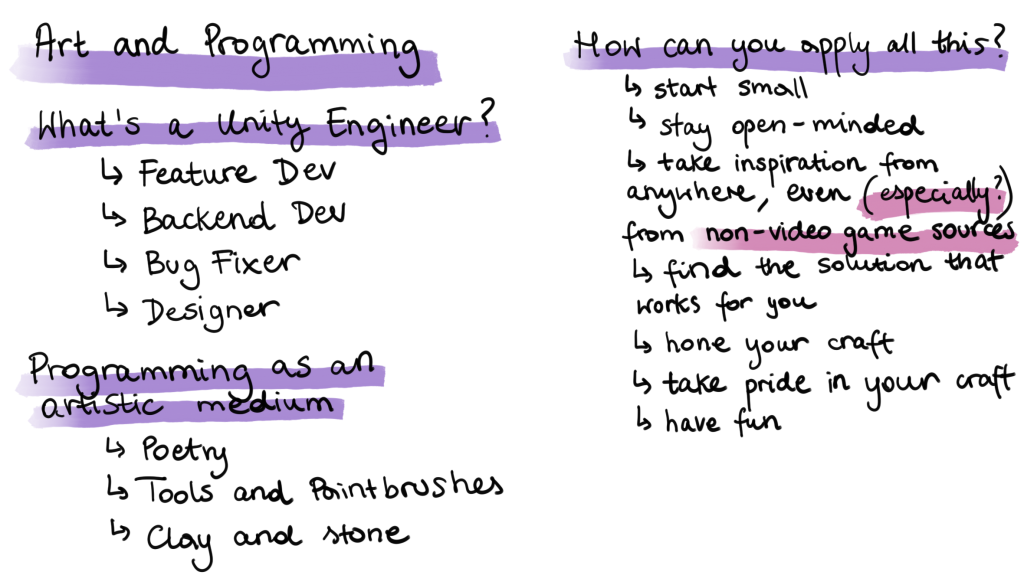 Art and Programming
What's a Unity Engineer?
↳ Feature Dev
↳ Backend Dev
↳ Bug Fixer
↳ Designer
Programming as an
artistic medium
↳ Poetry
↳ Tools and Paintbrushes
↳ Clay and stone
How can you apply all this?
↳ start small
↳ stay open-minded
↳ take inspiration from
anywhere, even (especially?)
from non-video game sources
↳ find the solution that
works for you
↳ hone your craft
↳ take pride in your craft
↳ have fun